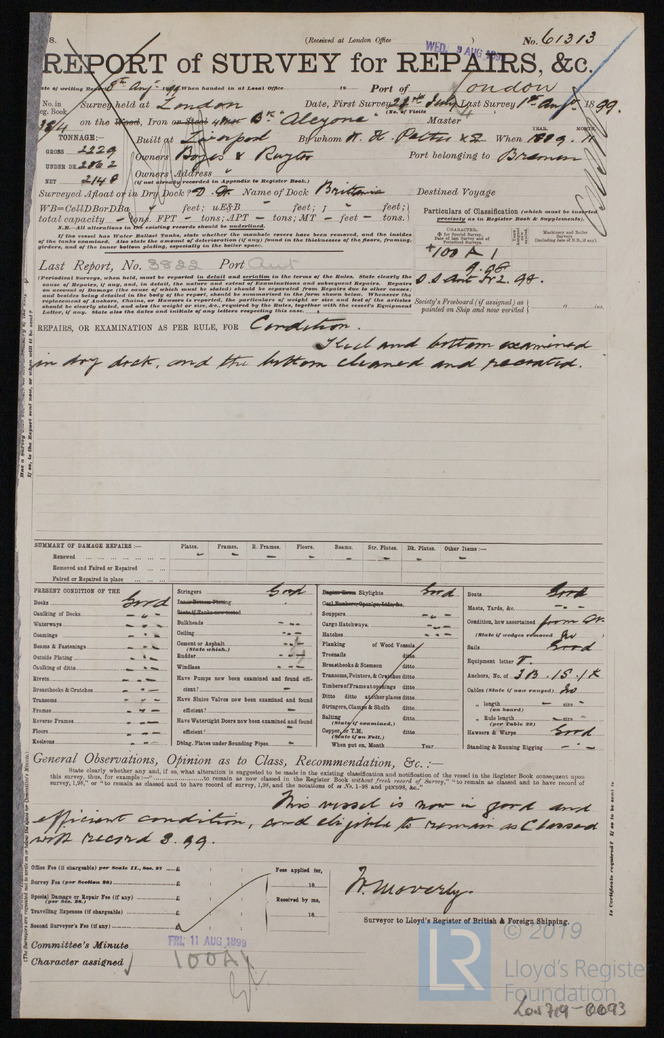 8.
(Received at London Office
WED. 9 AUG 1899
)
No. 61313
REPORT of SURVEY for REPAIRS, &c.
When handed in at Local Office
18
Port of London
No. in
Reg. Book
Survey held at London
Date, First Survey
July
Last Survey 1st Aug
1899.
(No. of Visits 4
on the Wood, Iron or Steel
Bk "Alcyone"
Master
TONNAGE:—
GROSS 2229
UNDER DK
NET 2148
Built at Liverpool
By whom
When
YEAR.
MONTH
Owners
Port belonging to Bremen
Owners Address
(if not already recorded in Appendix to Register Book.)
Surveyed Afloat or in Dry Dock? D.D. Name of Dock Brittania
Destined Voyage
WB=CellDBorDBa
feet; uE&B
feet;
feet;
total capacity - tons. FPT - tons; APT - tons; MT - feet - tons.
N.B.—All alterations in the existing records should be underlined.
If the vessel has Water Ballast Tanks, state whether the manhole covers have been removed, and the insides
of the tanks examined. Also state the amount of deterioration (if any) found in the thicknesses of the floors, framing,
girders, and of the inner bottom plating, especially in the boiler space.
Particulars of Classification (which must be inserted
precisely as in Register Book & Supplements).
CHARACTER.
Machinery and Boiler
Surveys
(including date of N.B., if any).
+100 A 1
9.98
S S Ant No 2. 98.
Last Report, No. 3822 Port Ant
(Periodical Surveys, when held, must be reported in detail and seriatim in the terms of the Rules. State clearly the
cause of Repairs, if any, and, in detail, the nature and extent of Examinations and subsequent Repairs. Repairs
on account of Damage (the cause of which must be stated) should be separated from Repairs due to other causes;
and besides being detailed in the body of the report, should be summarised in the form shewn below. Whenever the
replacement of Anchors, Chains, or Hawsers is reported, the particulars of weight or size and test of the articles
should be clearly stated, and also the weight or size, &c., required by the Rules, together with the vessel's Equipment
Letter, if any. State also the dates and initials of any letters respecting this case.
Society's Freeboard (if assigned) as
painted on Ship and now verified
REPAIRS, OR EXAMINATION AS PER RULE, FOR Condition.
Keel and bottom examined
in dry dock, and the bottom cleaned and recoated.
SUMMARY OF DAMAGE REPAIRS:—
Plates. Frames. R. Frames. Floors. Beams. Str. Plates. Dk. Plates. Other Items:—
Renewed
Removed and Faired or Repaired
Faired or Repaired in place
PRESENT CONDITION OF THE
Decks Good
Caulking of Decks "
Waterways "
Coamings "
Beams & Fastenings "
Outside Plating "
Caulking of ditto "
Rivets "
Breasthooks & Crutches "
Transoms "
Frames "
Reverse Frames "
Floors "
Keelsons "
Stringers Good
Inner Bottom Plating
Bulkheads "
Ceiling "
Cement or Asphalt "
(State which.)
Rudder "
Windlass "
Have Pumps now been examined and found efficient? -
Have Sluice Valves now been examined and found
efficient? -
Have Watertight Doors now been examined and found
efficient? -
Dblng. Plates under Sounding Pipes -
Engine Room Skylights Good
Scuppers "
Cargo Hatchways "
Hatches "
Planking of Wood Vessels
Treenails ditto
Breasthooks & Stemson ditto
Transoms, Pointers, & Crutches ditto
Timbers of Frame at openings ditto
Ditto ditto at other places ditto
Stringers, Clamps & Shelfs ditto
Salting ditto
(State if examined.)
Copper, or Y.M.
(State if on Felt.)
When put on, Month Year
Boats Good
Masts, Yards, &c. "
Condition, how ascertained from Dk
(State if wedges removed No
Sails Good
Equipment letter
Anchors, No. of 3B. 1S. 1K
Cables (State if now ranged) No
" length - size -
(on board)
" Rule length - size -
(per Table 22)
Hawsers & Warps Good
Standing & Running Rigging "
General Observations, Opinion as to Class, Recommendation, &c. :—
State clearly whether any and, if so, what alteration is suggested to be made in the existing classification and notification of the vessel in the Register Book consequent upon
this survey, thus, for example:—"...to remain as now classed in the Register Book without fresh record of Survey," "to remain as classed and to have record of
survey, 1,98," or "to remain as classed and to have record of survey, 1,98, and the notations of
This vessel is now in good and
efficient condition, and eligible to remain as Classed
with record 8.99.
Office Fee (if chargeable) per Scale II., Sec. 27 £
Survey Fee (per Section 28) £
Special Damage or Repair Fee (if any) £
(per Sec. 28.)
Travelling Expenses (if chargeable) £
Second Surveyor's Fee (if any) £
Fees applied for,
18
Received by me,
18
W. Moverly.
Surveyor to Lloyd's Register of British & Foreign Shipping.
Committee's Minute
FRI. 11 AUG 1899
Character assigned
100A1
LR
© 2019
Lloyd's Register
Foundation
Lon 719-0093